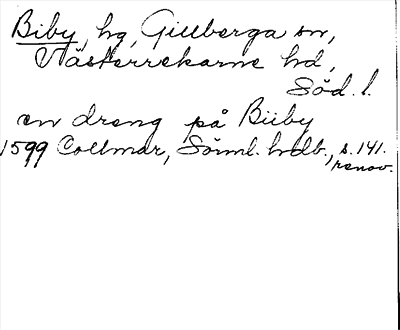 Biby, hg, Gillberga sn,
Västerrekarne hd,
Söd. l.
en dreng på Biiby
1599 Collmar, Sörml. hdb., s. 141.
renov.